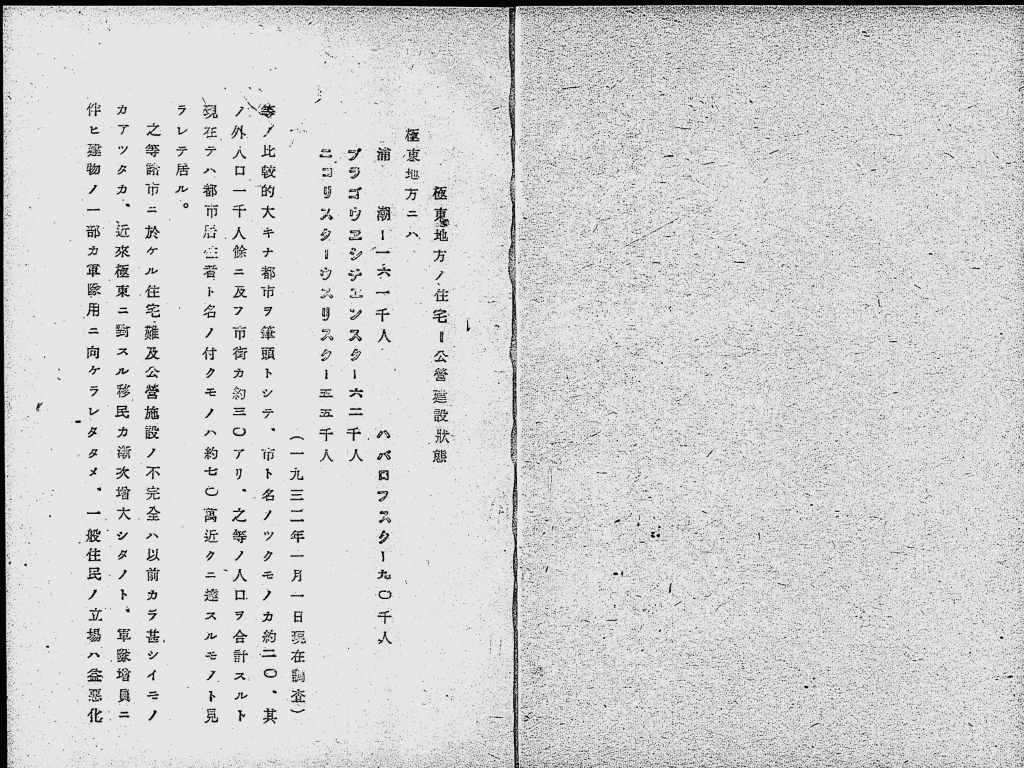 極東地方ノ住宅‖公營建設狀態
極東地方ニハ
浦　潮ー一六一千人　ハバロフスクー九〇千人
ブラゴウエシチエンスクー六二千人
ニコリスクーウスリスクー五五千人
（一九三二年一月一日現在調査）
等ノ比較的大キナ都市ヲ筆頭トシテ、市ト名ノツクモノカ約二〇、其
ノ外人口一千人餘ニ及フ市街カ約三〇アリ、之等ノ人口ヲ合計スルト
現在テハ都市居住者ト名ノ付クモノハ約七〇萬近クニ達スルモノト見
ラレテ居ル。
之等諸市ニ於ケル住宅難及公營施設ノ不完全ハ以前カラ甚シイモノ
カアツタカ、近來極東ニ對スル移民カ漸次增大シタノト、軍隊增員ニ
伴ヒ建物ノ一部カ軍隊用ニ向ケラレタタメ、一般住民ノ立場ハ益惡化